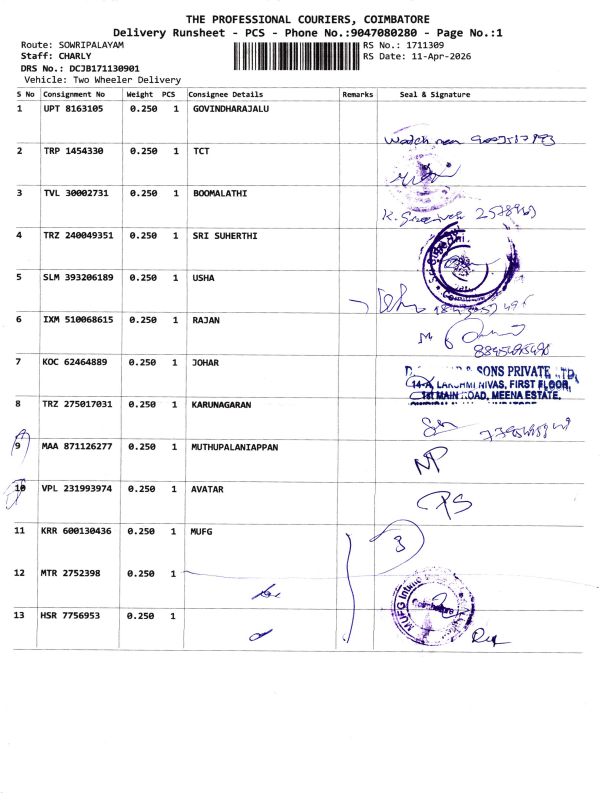 THE PROFESSIONAL COURIERS, COIMBATORE
Delivery Runsheet - PCS - Phone No.:9047080280 - Page No.:1
Route: SOWRIPALAYAM RS No.: 1711309
Staff: CHARLY RS Date: 11-Apr-2026
DRS No.: DCJB171130901
Vehicle: Two Wheeler Delivery
S No Consignment No Weight PCS Consignee Details Remarks Seal & Signature
1 UPT 8163105 0.250 1 GOVINDHARAJALU
2 TRP 1454330 0.250 1 TCT
3 TVL 30002731 0.250 1 BOOMALATHI
4 TRZ 240049351 0.250 1 SRI SUHERTHI
5 SLM 393206189 0.250 1 USHA
6 IXM 510068615 0.250 1 RAJAN
7 KOC 62464889 0.250 1 JOHAR
& SONS PRIVATE LTD,
14-A, LAKSHMI NIVAS, FIRST FLOOR,
1st MAIN ROAD, MEENA ESTATE,
8 TRZ 275017031 0.250 1 KARUNAGARAN
9 MAA 871126277 0.250 1 MUTHUPALANIAPPAN
MP
10 VPL 231993974 0.250 1 AVATAR
PS
11 KRR 600130436 0.250 1 MUFG
3
12 MTR 2752398 0.250 1
MUFG Intime
Coimbatore
13 HSR 7756953 0.250 1